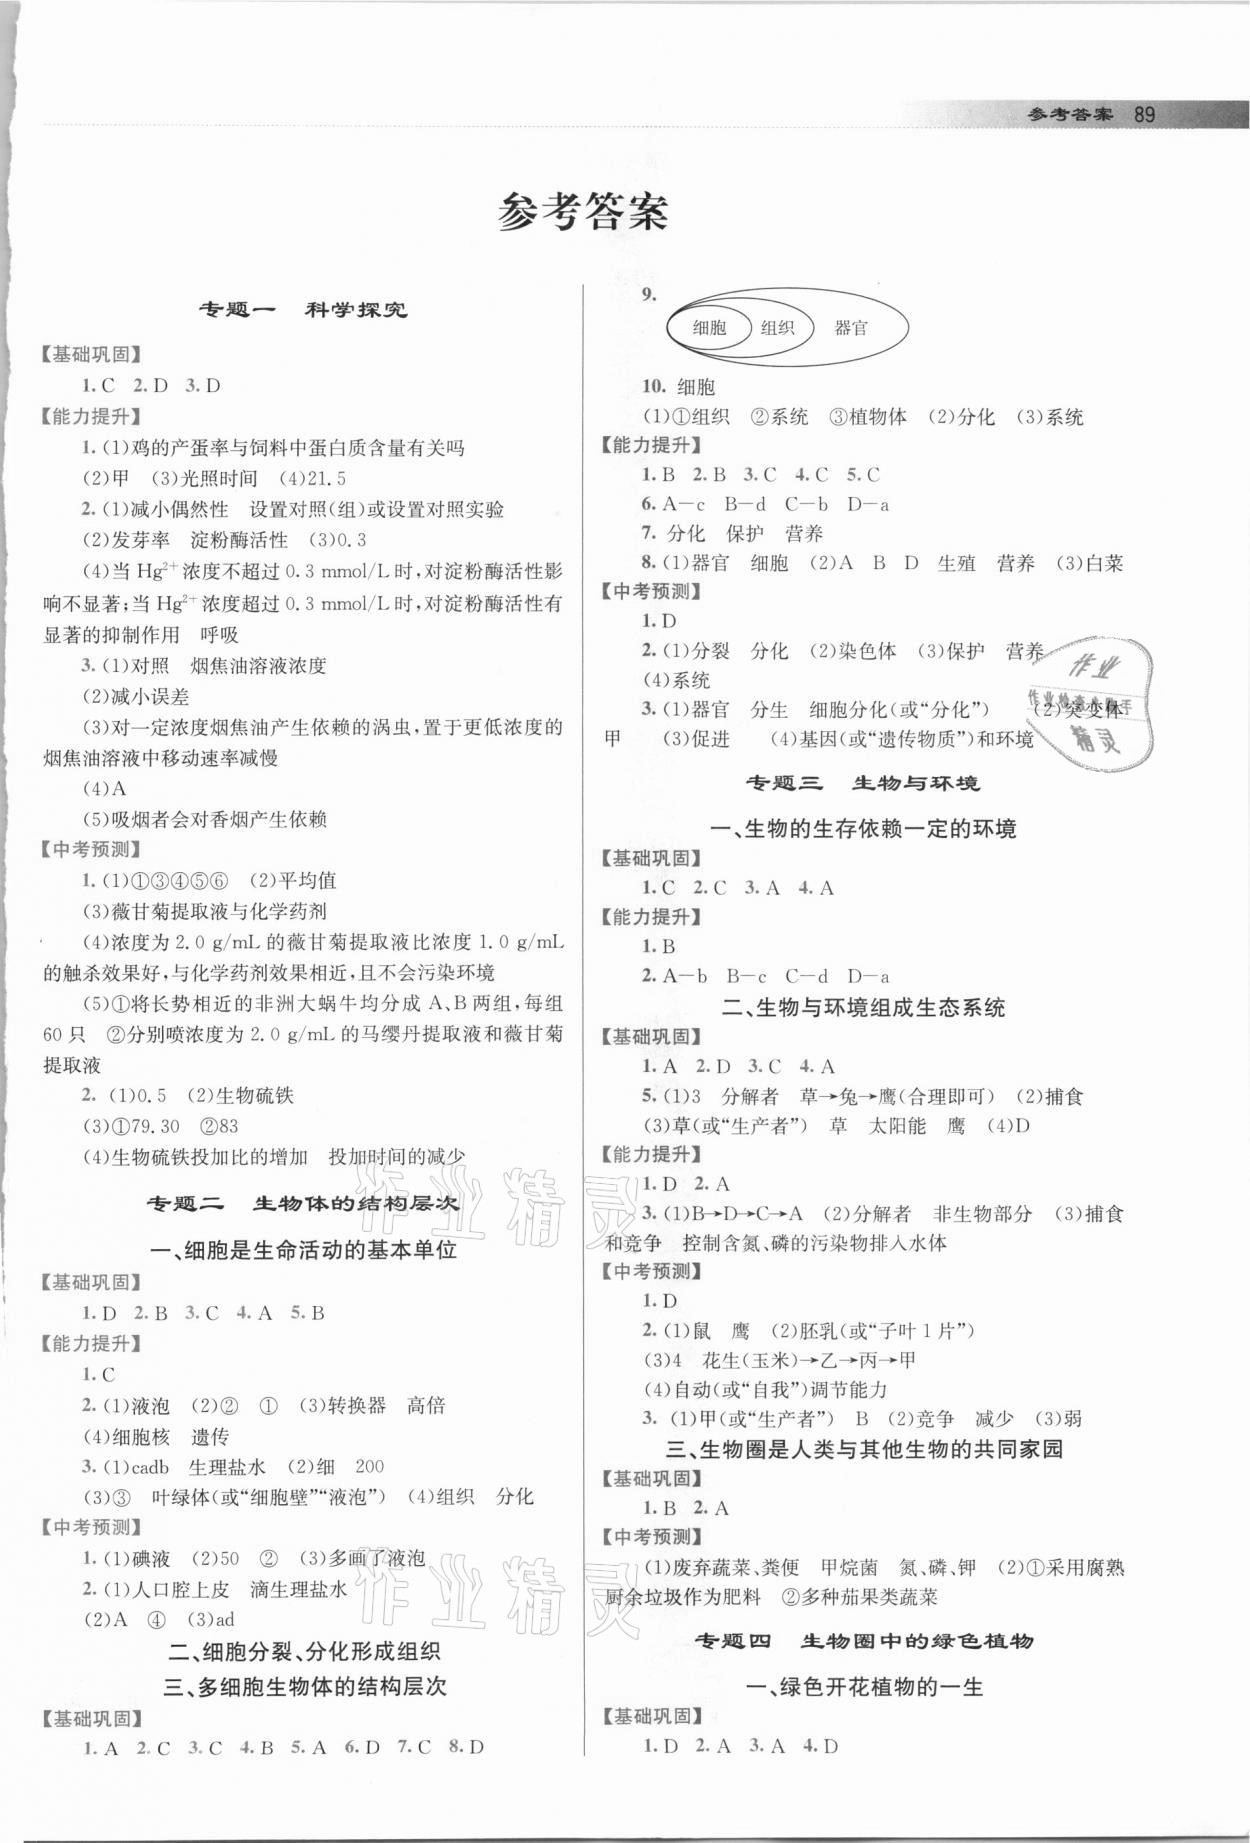 参考答案 89
参考答案
专题一 科学探究
【基础巩固】
1. C 2. D 3. D
【能力提升】
1. (1)鸡的产蛋率与饲料中蛋白质含量有关吗
(2)甲 (3)光照时间 (4)21.5
2. (1)减小偶然性 设置对照(组)或设置对照实验
(2)发芽率 淀粉酶活性 (3)0.3
(4)当 Hg²⁺浓度不超过 0.3 mmol/L时,对淀粉酶活性影
响不显著;当 Hg²⁺浓度超过 0.3 mmol/L时,对淀粉酶活性有
显著的抑制作用 呼吸
3. (1)对照 烟焦油溶液浓度
(2)减小误差
(3)对一定浓度烟焦油产生依赖的涡虫,置于更低浓度的
烟焦油溶液中移动速率减慢
(4)A
(5)吸烟者会对香烟产生依赖
【中考预测】
1. (1)①③④⑤⑥ (2)平均值
(3)薇甘菊提取液与化学药剂
(4)浓度为 2.0 g/mL 的薇甘菊提取液比浓度 1.0 g/mL
的触杀效果好,与化学药剂效果相近,且不会污染环境
(5)①将长势相近的非洲大蜗牛均分成 A、B 两组,每组
60 只 ②分别喷浓度为 2.0 g/mL 的马缨丹提取液和薇甘菊
提取液
2. (1)0.5 (2)生物硫铁
(3)①79.30 ②83
(4)生物硫铁投加比的增加 投加时间的减少
专题二 生物体的结构层次
一、细胞是生命活动的基本单位
【基础巩固】
1. D 2. B 3. C 4. A 5. B
【能力提升】
1. C
2. (1)液泡 (2)② ① (3)转换器 高倍
(4)细胞核 遗传
3. (1)cadb 生理盐水 (2)细 200
(3)③ 叶绿体(或“细胞壁”“液泡”) (4)组织 分化
【中考预测】
1. (1)碘液 (2)50 ② (3)多画了液泡
2. (1)人口腔上皮 滴生理盐水
(2)A ④ (3)ad
二、细胞分裂、分化形成组织
三、多细胞生物体的结构层次
【基础巩固】
1. A 2. C 3. C 4. B 5. A 6. D 7. C 8. D
9.
细胞 组织 器官
10. 细胞
(1)①组织 ②系统 ③植物体 (2)分化 (3)系统
【能力提升】
1. B 2. B 3. C 4. C 5. C
6. A—c B—d C—b D—a
7. 分化 保护 营养
8. (1)器官 细胞 (2)A B D 生殖 营养 (3)白菜
【中考预测】
1. D
2. (1)分裂 分化 (2)染色体 (3)保护 营养
(4)系统
3. (1)器官 分生 细胞分化(或“分化”) (2)突变体
甲 (3)促进 (4)基因(或“遗传物质”)和环境
专题三 生物与环境
一、生物的生存依赖一定的环境
【基础巩固】
1. C 2. C 3. A 4. A
【能力提升】
1. B
2. A—b B—c C—d D—a
二、生物与环境组成生态系统
【基础巩固】
1. A 2. D 3. C 4. A
5. (1)3 分解者 草→兔→鹰(合理即可) (2)捕食
(3)草(或“生产者”) 草 太阳能 鹰 (4)D
【能力提升】
1. D 2. A
3. (1)B→D→C→A (2)分解者 非生物部分 (3)捕食
和竞争 控制含氮、磷的污染物排入水体
【中考预测】
1. D
2. (1)鼠 鹰 (2)胚乳(或“子叶 1 片”)
(3)4 花生(玉米)→乙→丙→甲
(4)自动(或“自我”)调节能力
3. (1)甲(或“生产者”) B (2)竞争 减少 (3)弱
三、生物圈是人类与其他生物的共同家园
【基础巩固】
1. B 2. A
【中考预测】
(1)废弃蔬菜、粪便 甲烷菌 氮、磷、钾 (2)①采用腐熟
厨余垃圾作为肥料 ②多种茄果类蔬菜
专题四 生物圈中的绿色植物
一、绿色开花植物的一生
【基础巩固】
1. D 2. A 3. A 4. D
作业
精灵
作业精灵
作业精灵